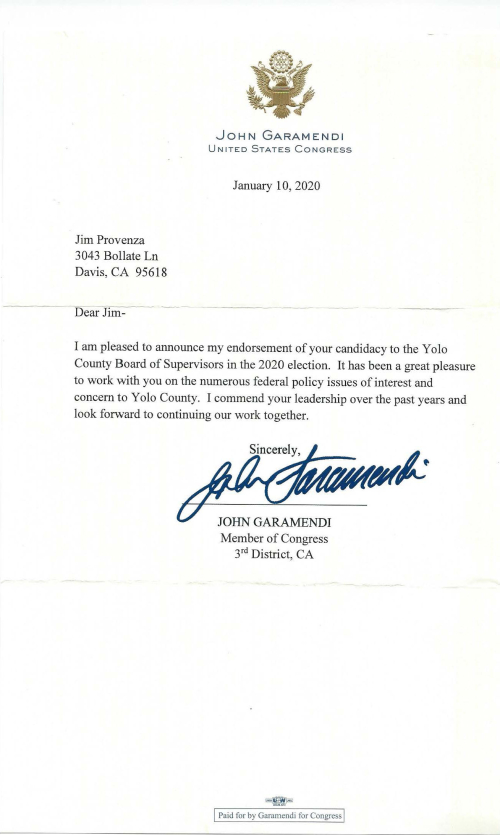 JOHN GARAMENDI
UNITED STATES CONGRESS
January 10, 2020
Jim Provenza
3043 Bollate Ln
Davis, CA 95618
Dear Jim-
I am pleased to announce my endorsement of your candidacy to the Yolo
County Board of Supervisors in the 2020 election. It has been a great pleasure
to work with you on the numerous federal policy issues of interest and
concern to Yolo County. I commend your leadership over the past years and
look forward to continuing our work together.
Sincerely,
John Garamendi
JOHN GARAMENDI
Member of Congress
3rd District, CA
Paid for by Garamendi for Congress